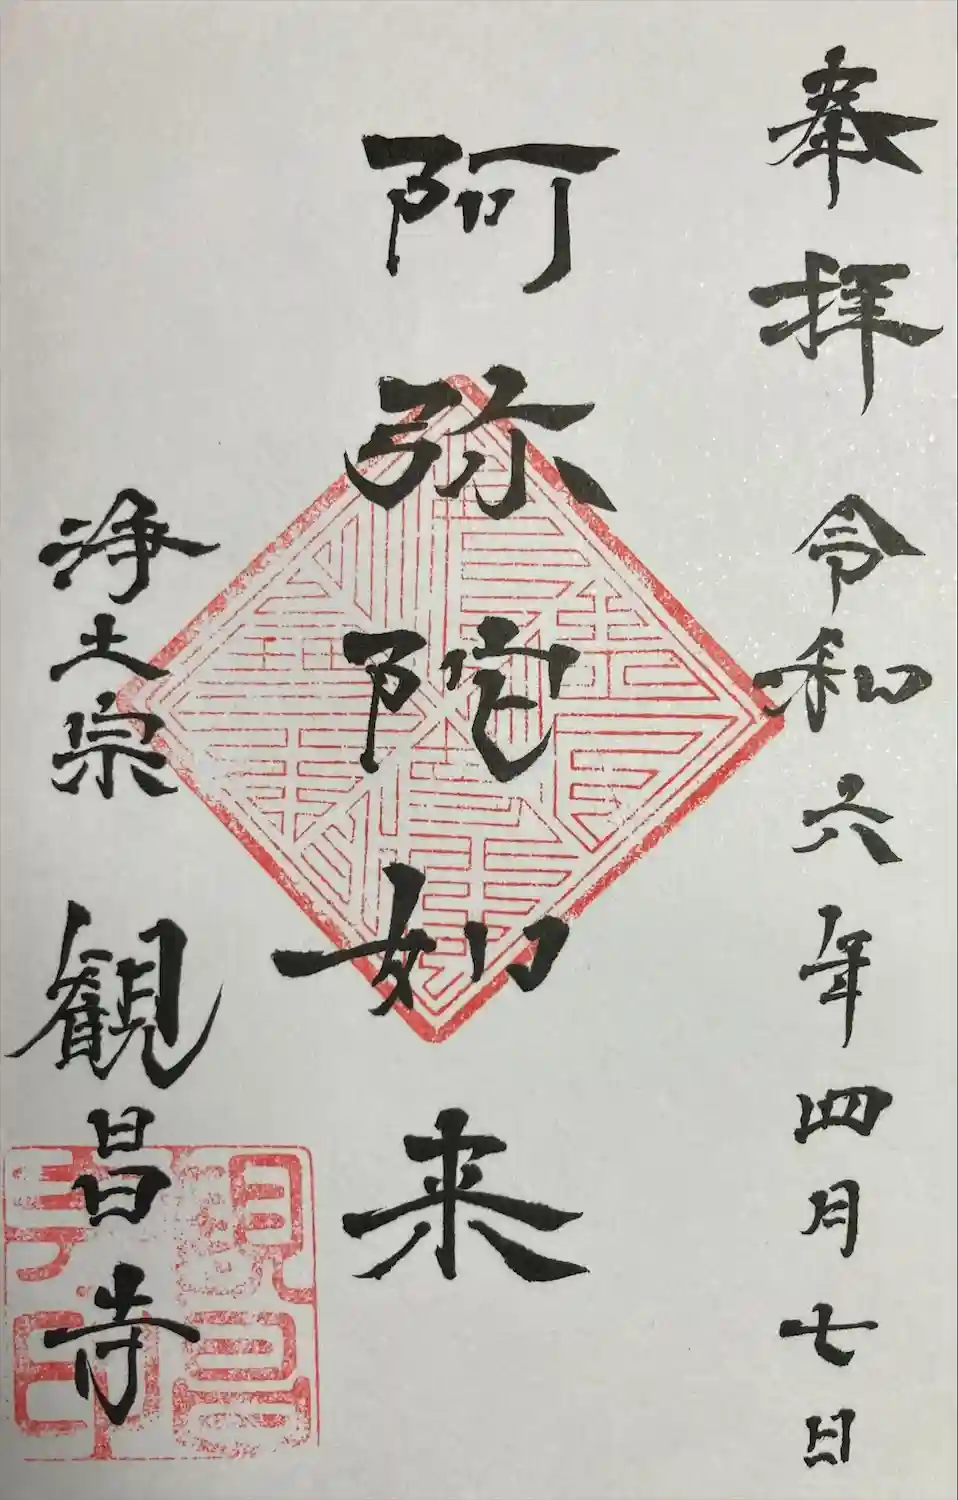 奉拝 令和六年四月七日
阿弥陀如来
浄土宗 観昌寺